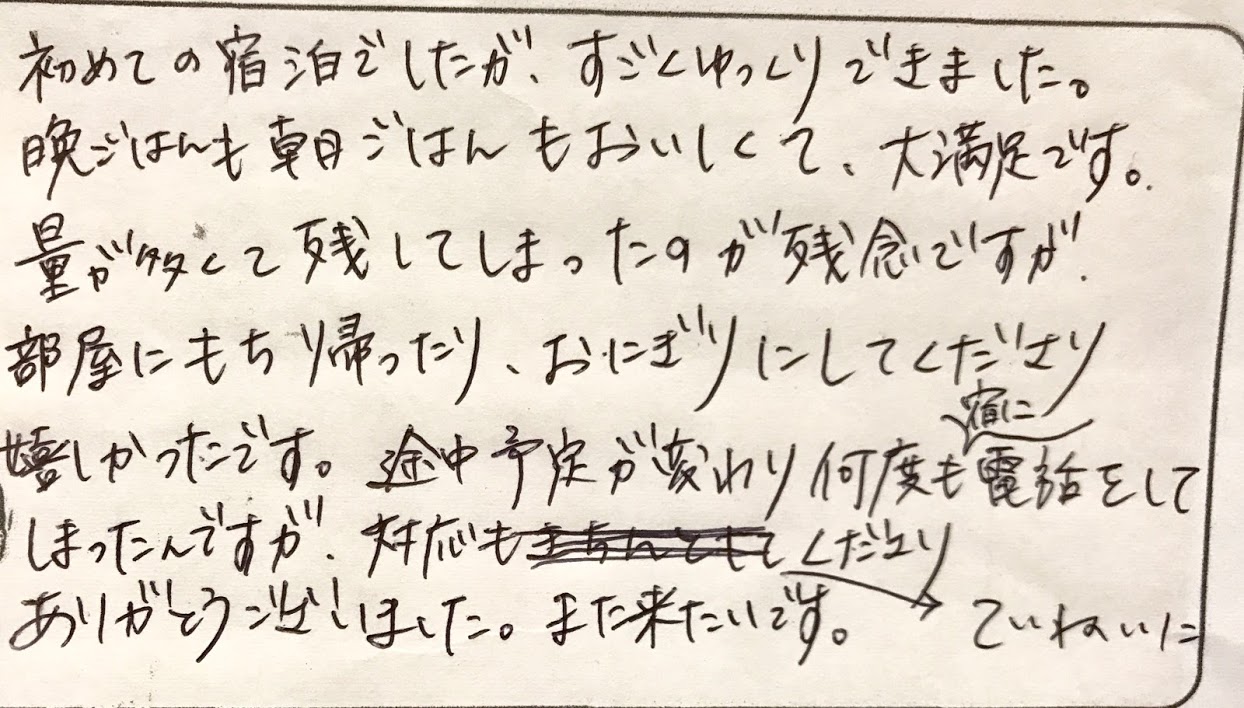 初めての宿泊でしたが、すごくゆっくりできました。
晩ごはんも朝ごはんもおいしくて、大満足です。
量が多くて残してしまったのが残念ですが、
部屋にもちり帰ったり、おにぎりにしてくださり
宿に
嬉しかったです。途中予定が変わり何度も電話をして
しまったんですが、対応もきちんとしてくださり
ありがとうございました。また来たいです。 ていねいに